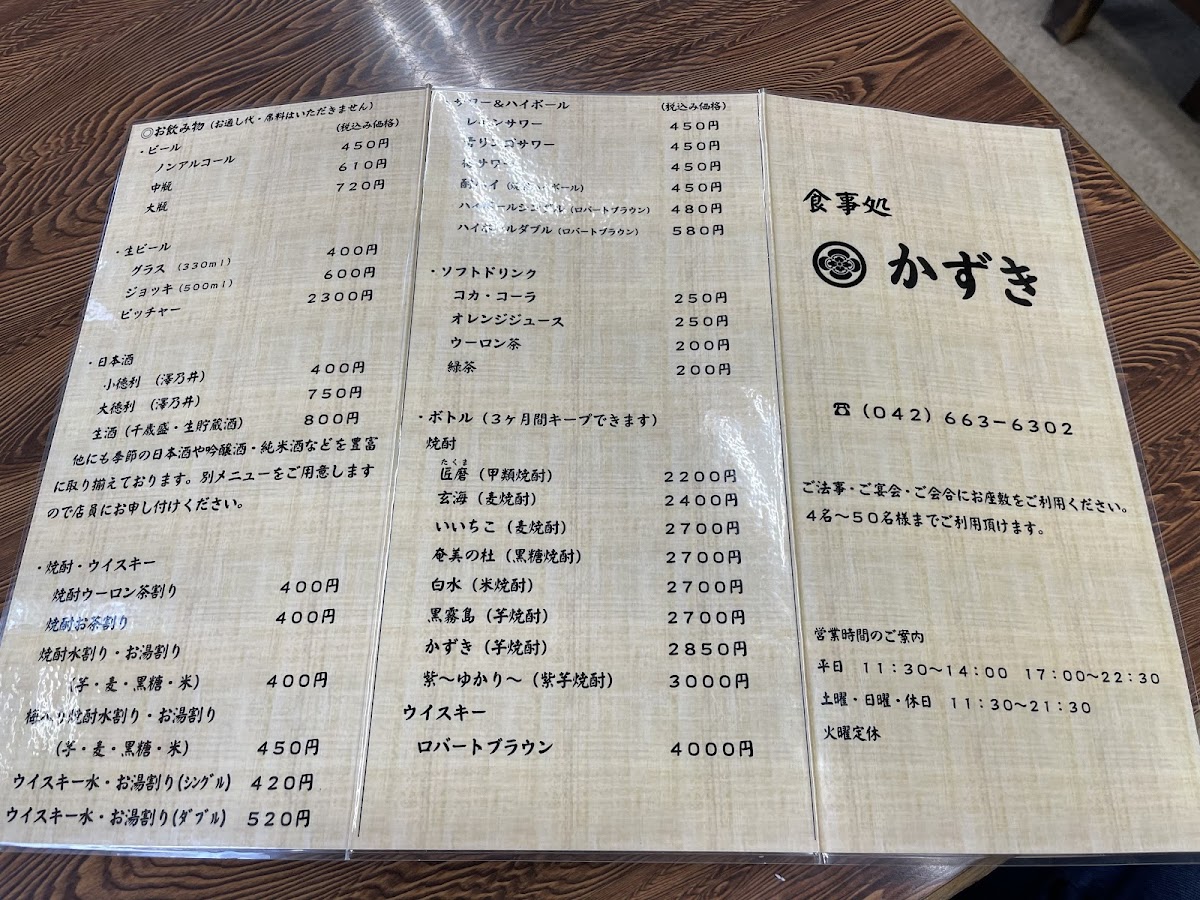 ◎お飲み物（お通し代・席料はいただきません）
（税込み価格）
・ビール
ノンアルコール　４５０円
中瓶　６１０円
大瓶　７２０円
・生ビール
グラス（３３０ｍｌ）　４００円
ジョッキ（５００ｍｌ）　６００円
ピッチャー　２３００円
・日本酒
小徳利　（澤乃井）　４００円
大徳利　（澤乃井）　７５０円
生酒（千歳盛・生貯蔵酒）　８００円
他にも季節の日本酒や吟醸酒・純米酒などを豊富
に取り揃えております。別メニューをご用意します
ので店員にお申し付けください。
・焼酎・ウイスキー
焼酎ウーロン茶割り　４００円
焼酎お茶割り　４００円
焼酎水割り・お湯割り
（芋・麦・黒糖・米）　４００円
梅入り焼酎水割り・お湯割り
（芋・麦・黒糖・米）　４５０円
ウイスキー水・お湯割り(ｼﾝｸﾞﾙ)　４２０円
ウイスキー水・お湯割り(ﾀﾞﾌﾞﾙ)　５２０円
サワー＆ハイボール　（税込み価格）
レモンサワー　４５０円
青リンゴサワー　４５０円
サワー　４５０円
酎ハイ　４５０円
ハイボールシングル（ロバートブラウン）　４８０円
ハイボールダブル（ロバートブラウン）　５８０円
・ソフトドリンク
コカ・コーラ　２５０円
オレンジジュース　２５０円
ウーロン茶　２００円
緑茶　２００円
・ボトル（３ヶ月間キープできます）
焼酎
たくま
匠磨（甲類焼酎）　２２００円
玄海（麦焼酎）　２４００円
いいちこ（麦焼酎）　２７００円
奄美の杜（黒糖焼酎）　２７００円
白水（米焼酎）　２７００円
黒霧島（芋焼酎）　２７００円
かずき（芋焼酎）　２８５０円
紫～ゆかり～（紫芋焼酎）　３０００円
ウイスキー
ロバートブラウン　４０００円
食事処
かずき
☎（０４２）６６３－６３０２
ご法事・ご宴会・ご会合にお座敷をご利用ください。
４名～５０名様までご利用頂けます。
営業時間のご案内
平日　１１：３０～１４：００　１７：００～２２：３０
土曜・日曜・休日　１１：３０～２１：３０
火曜定休